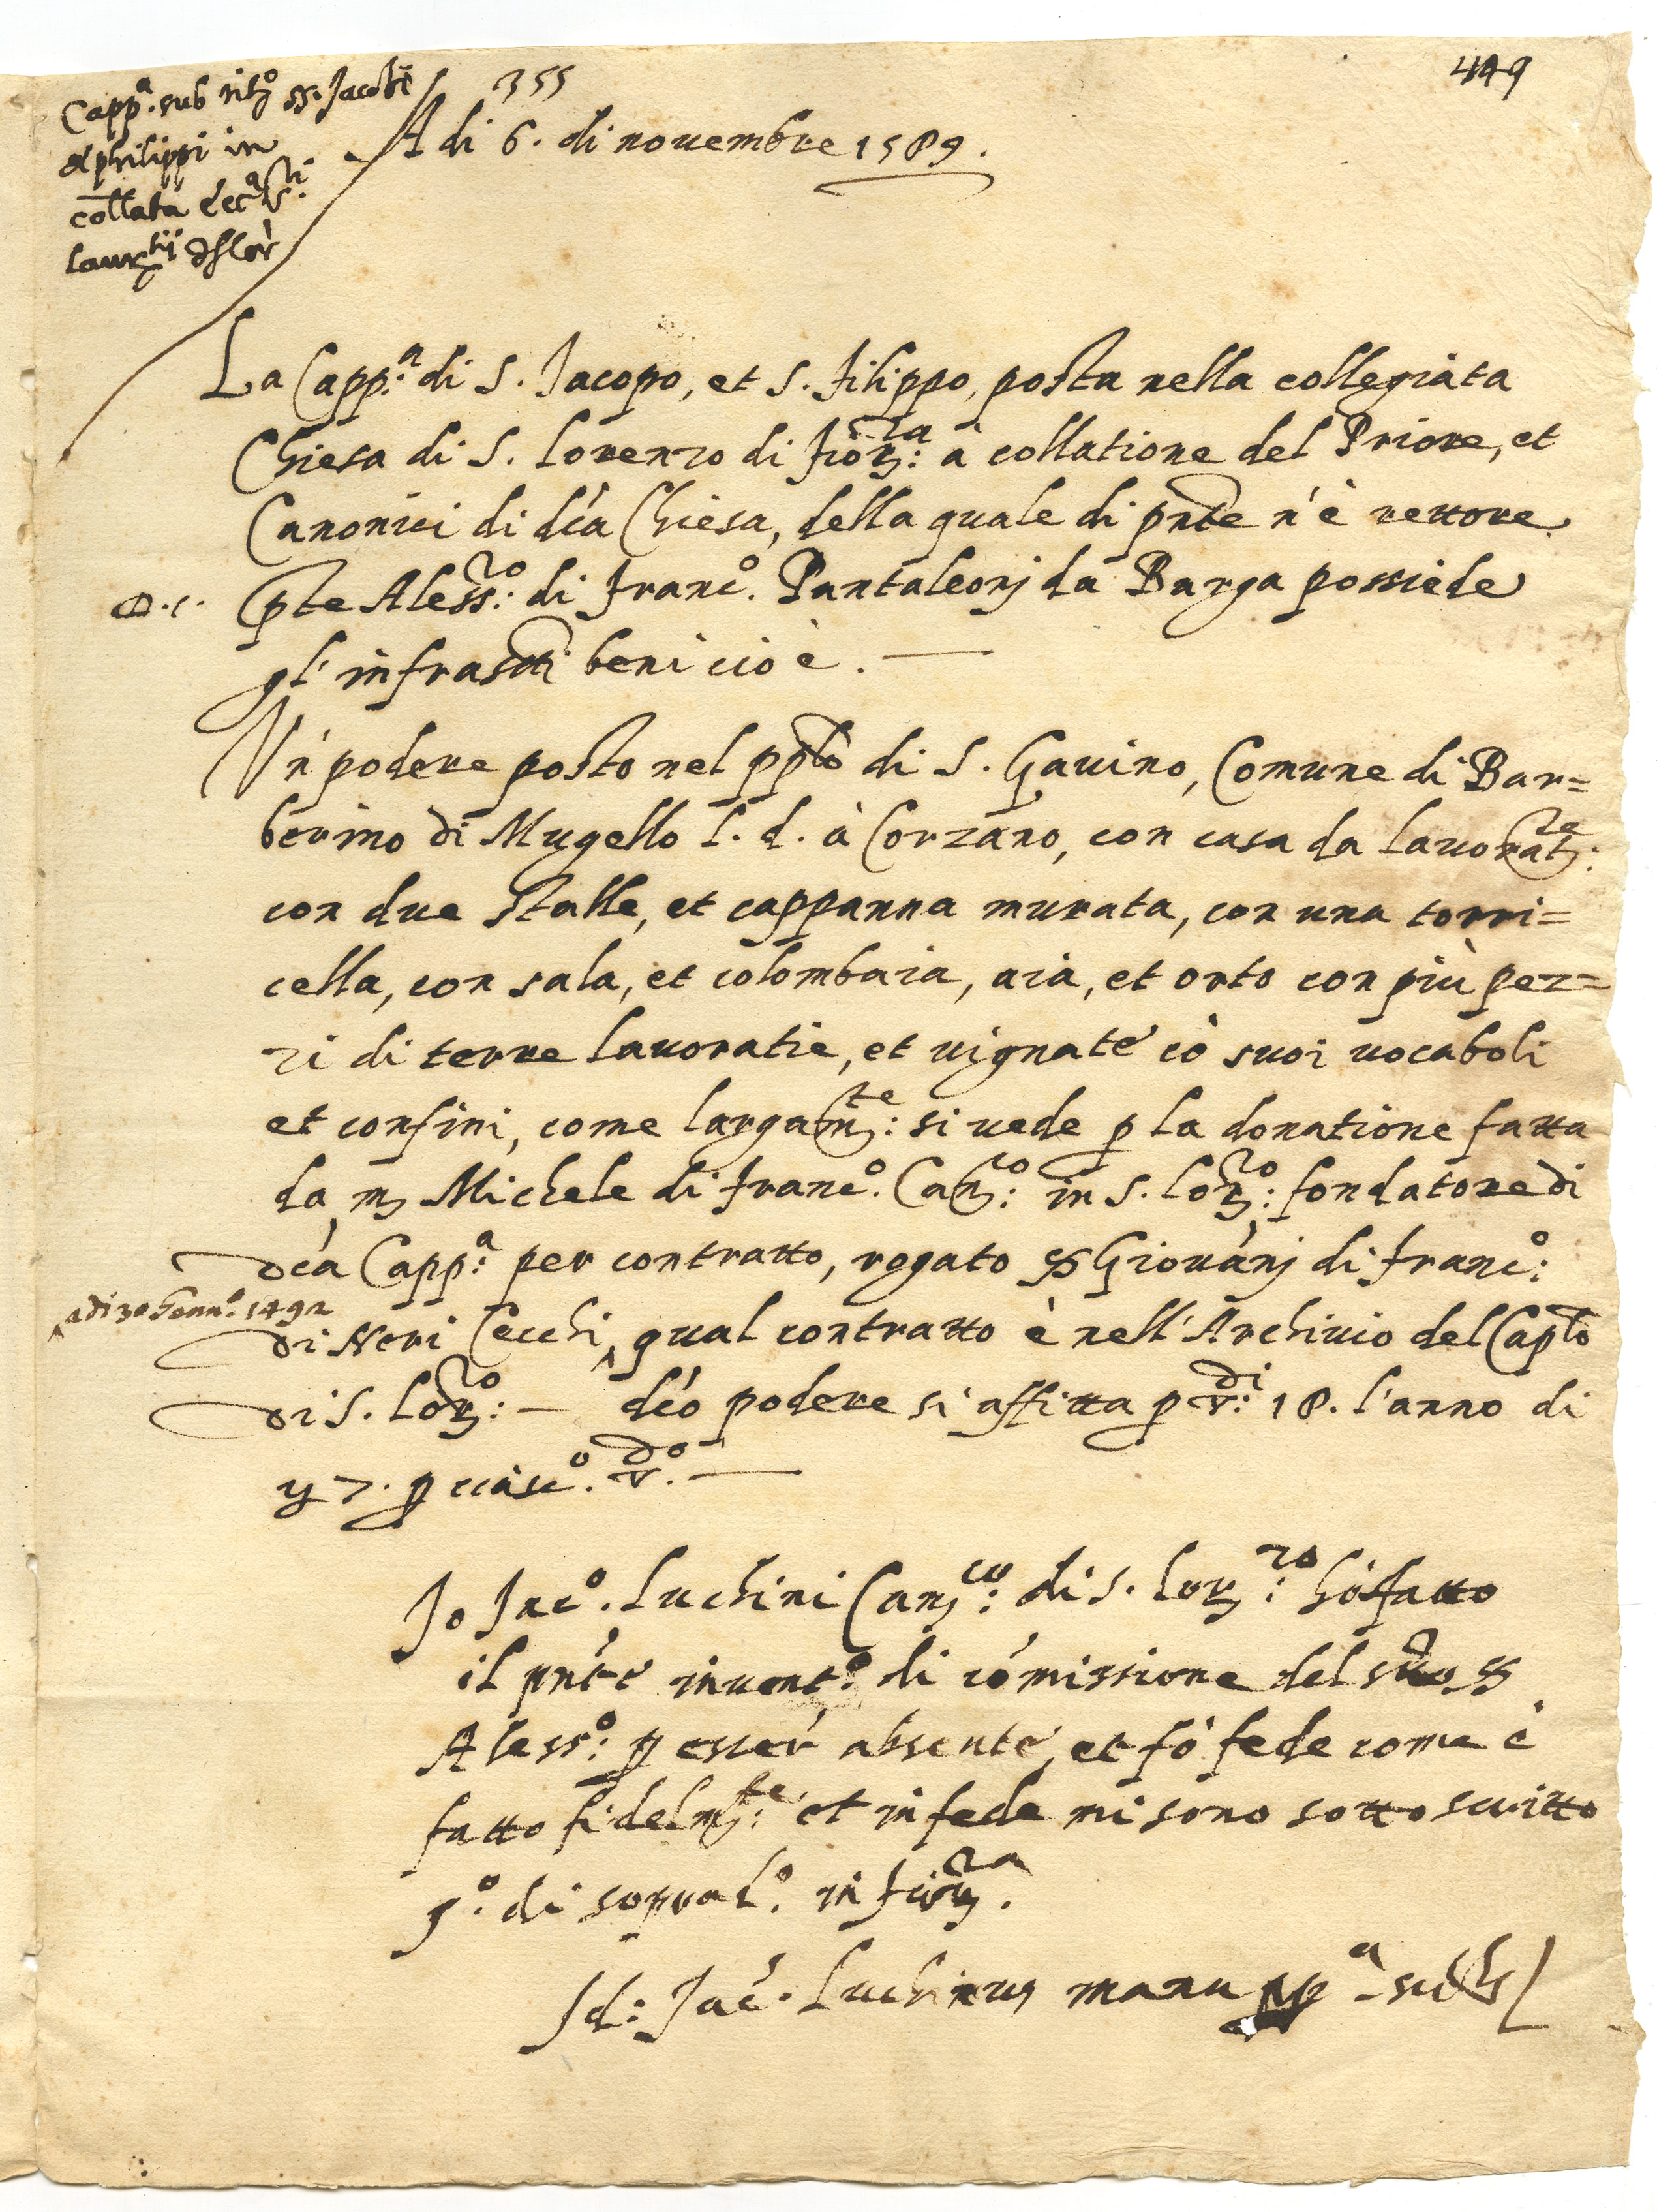 355
449
Capp.a sub tit.o ss. Jacobi
et philippi in
collata ecc.a S.ti
Laur.tij de flor
A di 6. di novembre 1589.
La Capp.a di S. Jacopo, et S. filippo, posta nella collegiata
Chiesa di S. Lorenzo di fior.za: à collatione del Priore, et
Canonici di dća Chiesa, della quale di pnte n'è rettore
D. c. pte Aless.ro: di franc.o Pantaleonj da Barga possiede
gl' infrascti beni cioè. —
Un podere posto nel pplo di S. Gavino, Comune di Bar=
berino di Mugello l. d. à Corzano, con casa da lavorat.re:
con due stalle, et cappanna murata, con una torri=
cella, con sala, et colombaia, aia, et orto con più pez=
zi di terre lavoratie, et vignate cò suoi vocaboli
et confini, come largam.te: si vede p la donatione fatta
da m Michele di franc.o Can.co: in S. Lor.zo: fondatore di
dća Capp.a per contratto, rogato ss Giovànj di franc.o:
a di 30 Genn.o 1492
di Neri Cecchi, qual contratto è nell'Archivio del Caplo
di S. Lor.zo: — dćo podere si affitta p V.di: 18. l'anno di
y 7. p ciasc.o V.do —
Jo Jac.o Luchini Can.co: di S. Lor.zo: hò fatto
il pnte invent.o di cómissione del sud.o ss
Aless.o: p esser absente, et fò fede come è
fatto fidelm.te: et in fede mi sono sotto scritto
g.o di sopra d.o in fior.za.
Id: Jac. Luchinus manu pp.a scr